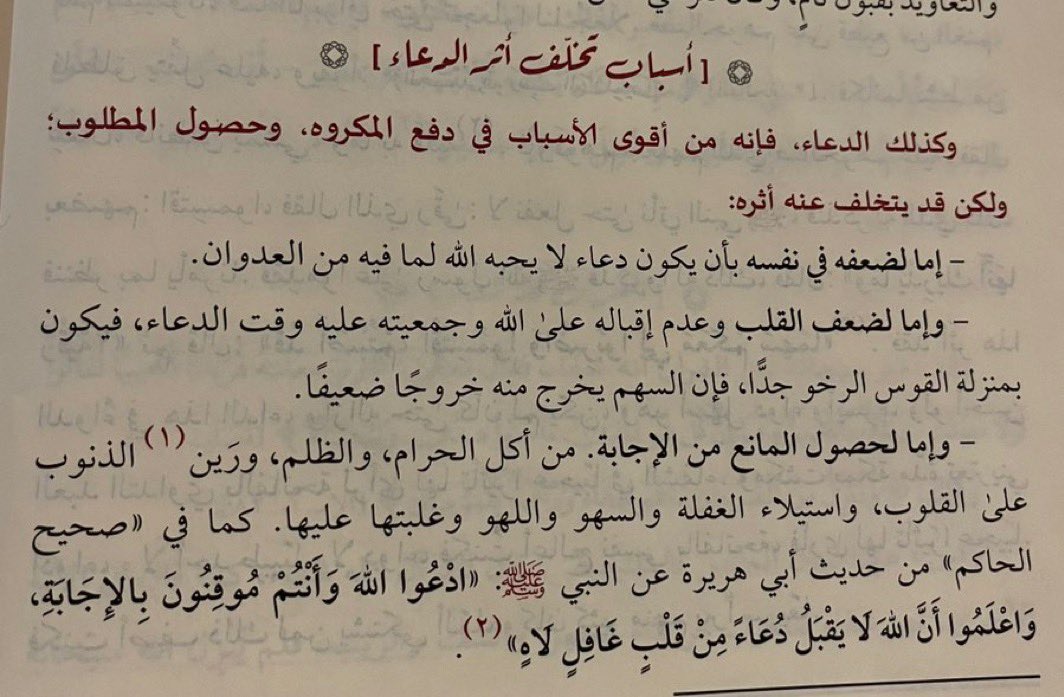 والتعاويذ بقبول تام،
[ أسباب تخلّف أثر الدعاء ]
وكذلك الدعاء، فإنه من أقوى الأسباب في دفع المكروه، وحصول المطلوب؛
ولكن قد يتخلف عنه أثره:
– إما لضعفه في نفسه بأن يكون دعاء لا يحبه الله لما فيه من العدوان.
– وإما لضعف القلب وعدم إقباله علىٰ الله وجمعيته عليه وقت الدعاء، فيكون
بمنزلة القوس الرخو جدًّا، فإن السهم يخرج منه خروجًا ضعيفًا.
– وإما لحصول المانع من الإجابة. من أكل الحرام، والظلم، ورَين (١) الذنوب
علىٰ القلوب، واستيلاء الغفلة والسهو واللهو وغلبتها عليها. كما في «صحيح
الحاكم» من حديث أبي هريرة عن النبي ﷺ: «ادْعُوا اللهَ وَأَنْتُمْ مُوقِنُونَ بِالإِجَابَةِ،
وَاعْلَمُوا أَنَّ اللهَ لَا يَقْبَلُ دُعَاءً مِنْ قَلْبٍ غَافِلٍ لَاهٍ» (٢).